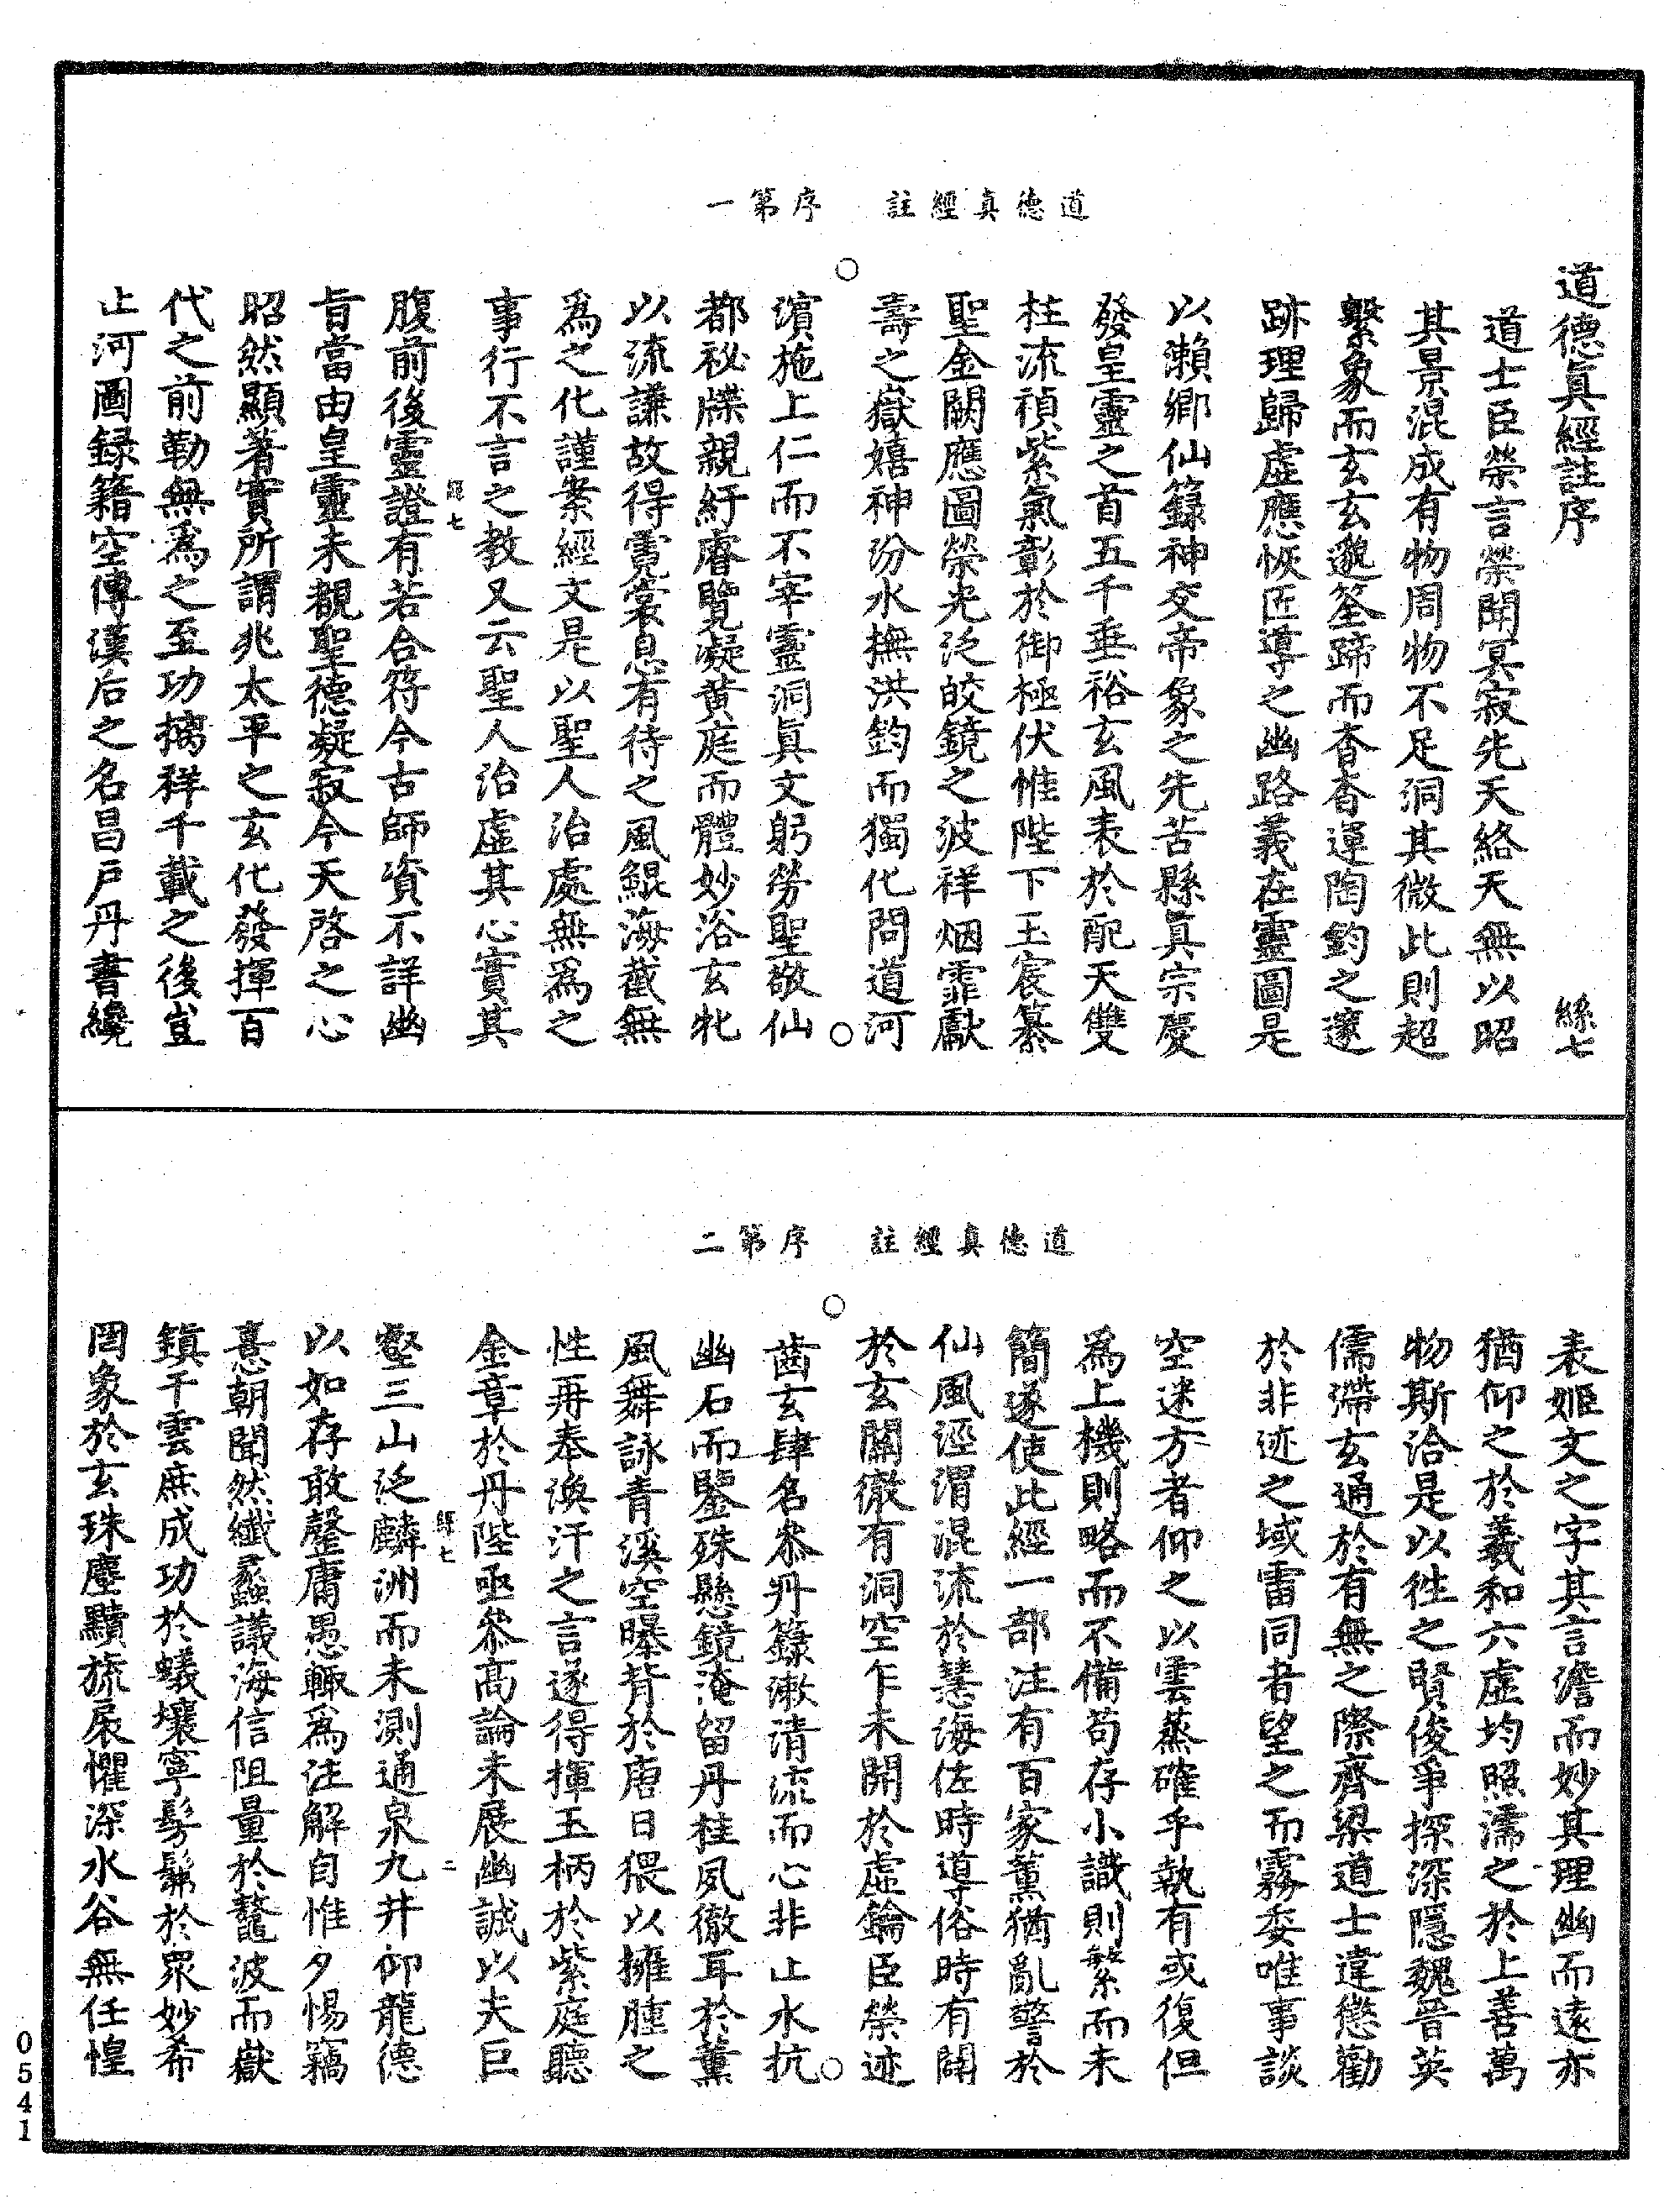 道德真經註　序第一
道德眞經註序　絲七
道士臣榮言榮聞冥寂先天絡天無以昭
其景混成有物周物不足洞其微此則超
繫象而玄玄邈筌蹄而杳杳運陶鈞之邃
跡理歸虛應恢匠導之幽路義在靈圖是
以瀨鄉仙籙神交帝象之先苦縣眞宗慶
發皇靈之首五千垂裕玄風表於配天雙
柱流禎紫氣彰於御極伏惟陛下玉宸纂
聖金闕應圖榮光泛皎鏡之波祥烟霏獻
壽之嶽嬉神汾水撫洪鈞而獨化問道河
濱施上仁而不宰靈洞眞文躬勞聖敬仙
都祕牒親紆睿覽凝黄庭而體妙浴玄牝
以流謙故得霓裳息有待之風鯤海截無
爲之化謹案經文是以聖人治處無爲之
事行不言之教又云聖人治虛其心實其
絲七
腹前後靈證有若合符今古師資不詳幽
旨當由皇靈未覩聖德凝寂今天啓之心
昭然顯著實所謂兆太平之玄化發揮百
代之前勒無爲之至功摛祥千載之後豈
止河圖録籍空傳漢后之名昌戶丹書纔
道德真經註　序第二
表姬文之字其言澹而妙其理幽而遠亦
猶仰之於羲和六虛均照濡之於上善萬
物斯洽是以徃之賢俊爭探深隱魏晉英
儒滯玄通於有無之際齊梁道士違懲勸
於非迹之域雷同者望之而霧委唯事談
空迷方者仰之以雲蒸確乎執有或復但
爲上機則略而不備苟存小識則繁而未
簡遂使此經一部注有百家薰猶亂警於
仙風涇渭混流於慧海佐時導俗時有闕
於玄關徹有洞空乍未開於虛鑰臣榮迹
齒玄肆名參丹籙漱清流而心非止水抗
幽石而鑒殊懸鏡淹留丹桂夙徹耳於薰
風舞詠青溪空曝背於唐日猥以擁腫之
性再奉渙汗之言遂得揮玉柄於紫庭聽
金章於丹陛亟參高論未展幽誠以夫巨
絲七　二
壑三山泛麟洲而未測通泉九井仰龍德
以如存敢罄庸愚輒爲注解自惟夕惕竊
憙朝聞然纖蠡議海信阻量於鼇波而嶽
鎮干雲庶成功於蟻壤寧髣髴於衆妙希
罔象於玄珠塵黷旒扆懼深水谷無任惶
0541